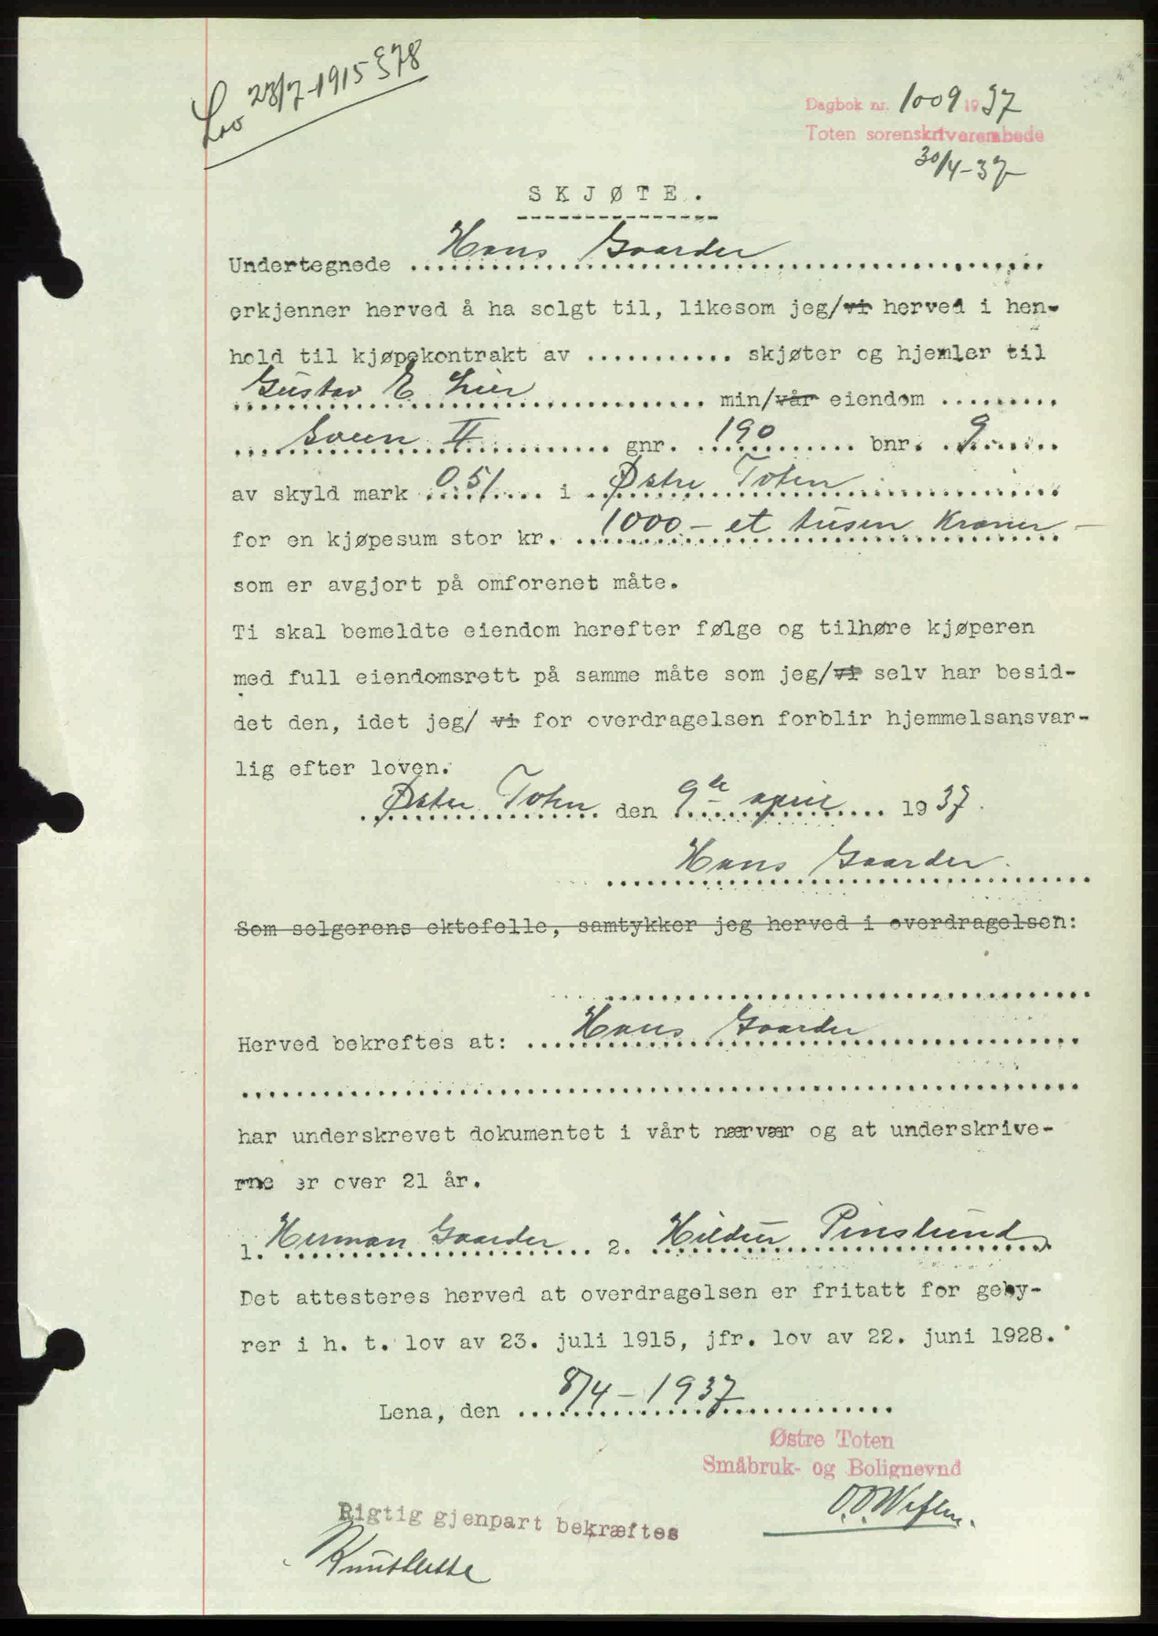 Lov 23/7-1915 § 78
Dagbok nr. 1009 1937
Toten sorenskriverembede
30/4-37
SKJØTE.
Undertegnede Hans Gaarder
erkjenner herved å ha solgt til, likesom jeg/vi herved i hen-
hold til kjøpekontrakt av ........... skjøter og hjemler til
Gustav E. Lier min/vår eiendom .........
II gnr. 190 bnr. 9
av skyld mark 0.51 i Østre Toten
for en kjøpesum stor kr. 1000 - et tusen Kroner -
som er avgjort på omforenet måte.
Ti skal bemeldte eiendom herefter følge og tilhøre kjøperen
med full eiendomsrett på samme måte som jeg/vi selv har besid-
det den, idet jeg/ vi for overdragelsen forblir hjemmelsansvar-
lig efter loven.
Østre Toten den 9de april 1937.
Hans Gaarder.
Som selgerens ektefelle, samtykker jeg herved i overdragelsen:
Herved bekreftes at: Hans Gaarder
har underskrevet dokumentet i vårt nærvær og at underskrive-
rne er over 21 år.
1. Herman Gaarder 2. Hildur Pinslund
Det attesteres herved at overdragelsen er fritatt for geby-
rer i h. t. lov av 23. juli 1915, jfr. lov av 22. juni 1928.
Lena, den 8/4-1937
Østre Toten
Småbruk- og Bolignevnd
Rigtig gjenpart bekræftes